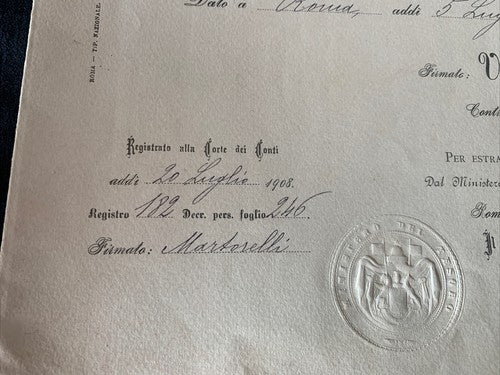 Dato a Roma, addì 5 Lug
ROMA — TIP. NAZIONALE.
Firmato: V
Cont
Registrato alla Corte dei Conti
addì 20 Luglio 1908.
Registro 182 Decr. pers. foglio 246.
Firmato: Martorelli
PER ESTRA
Dal Minister
Rom
MINISTERO DEL TESORO